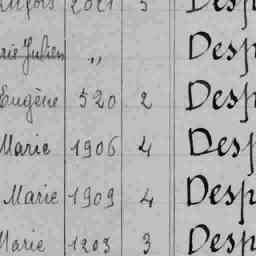 2021 5 Desp
Julien „ Desp
Eugène 520 2 Desp
Marie 1906 4 Desp
Marie 1909 4 Desp
Marie 1203 3 Desp